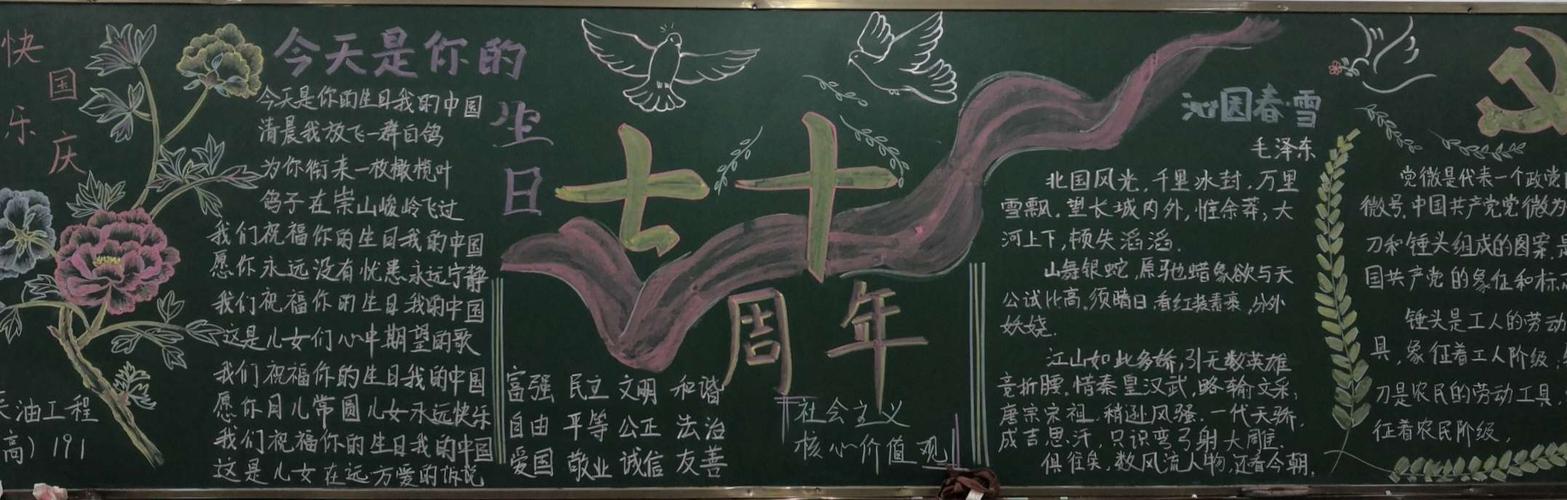 快乐
国庆
天油工程
高）191
今天是你的
生日
今天是你的生日我的中国
清晨我放飞一群白鸽
为你衔来一枚橄榄叶
鸽子在崇山峻岭飞过
我们祝福你的生日我的中国
愿你永远没有忧患永远宁静
我们祝福你的生日我的中国
这是儿女们心中期望的歌
我们祝福你的生日我的中国
愿你月儿常圆儿女永远快乐
我们祝福你的生日我的中国
这是儿女在远方爱的诉说
七十
周年
富强 民主 文明 和谐
自由 平等 公正 法治
爱国 敬业 诚信 友善
社会主义
核心价值观
沁园春·雪
毛泽东
北国风光,千里冰封,万里
雪飘.望长城内外,惟余莽,大
河上下,顿失滔滔.
山舞银蛇,原驰蜡象欲与天
公试比高.须晴日,看红装素裹,分外
妖娆.
江山如此多娇,引无数英雄
竞折腰.惜秦皇汉武,略输文采,
唐宗宋祖.稍逊风骚.一代天骄,
成吉思汗,只识弯弓射大雕.
俱往矣,数风流人物,还看今朝.
党徽是代表一个政党
徽号.中国共产党党徽为
刀和锤头组成的图案.
国共产党的象征和标
锤头是工人的劳动
具,象征着工人阶级,
刀是农民的劳动工具,
征着农民阶级,